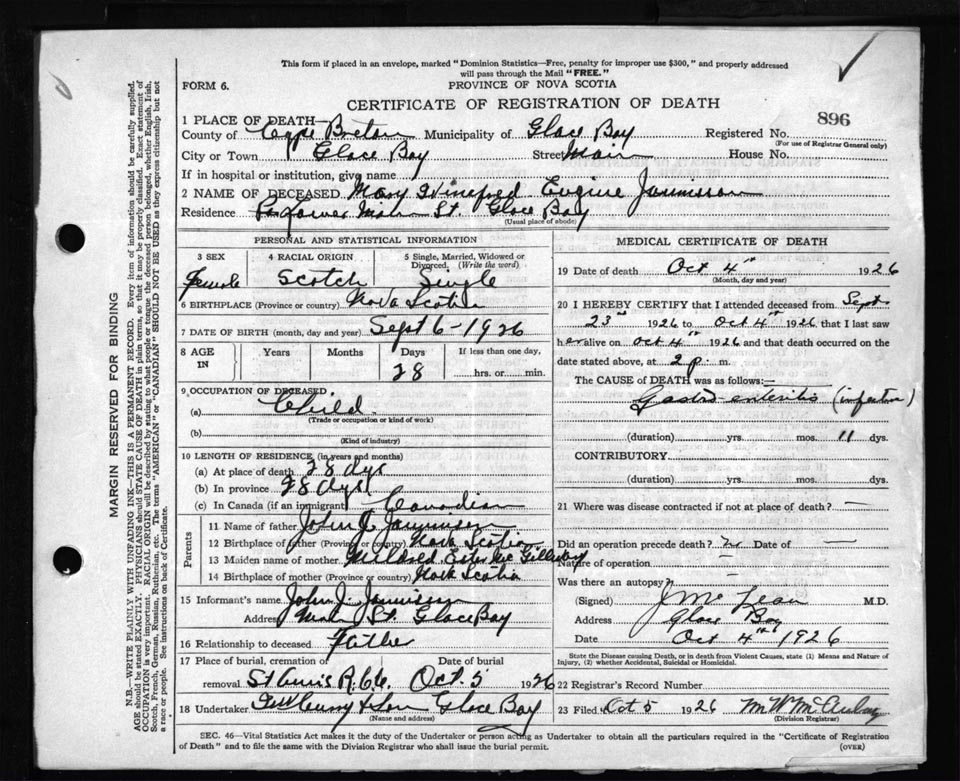 This form if placed in an envelope, marked "Dominion Statistics—Free, penalty for improper use $300," and properly addressed
will pass through the Mail "FREE."
FORM 6.
PROVINCE OF NOVA SCOTIA
CERTIFICATE OF REGISTRATION OF DEATH
896
1 PLACE OF DEATH—
County of Cape Breton Municipality of Glace Bay Registered No.
(For use of Registrar General only)
City or Town Glace Bay Street Main House No.
If in hospital or institution, give name
2 NAME OF DECEASED Mary Winefred Eugine Jamieson
Residence Lower Main St. Glace Bay
(Usual place of abode)
PERSONAL AND STATISTICAL INFORMATION
3 SEX 4 RACIAL ORIGIN 5 Single, Married, Widowed or
Divorced. (Write the word)
Female Scotch Single
6 BIRTHPLACE (Province or country) Nova Scotia
7 DATE OF BIRTH (month, day and year) Sept 6 - 1926
8 AGE IN Years Months Days If less than one day,
28 hrs. or min.
9 OCCUPATION OF DECEASED.
(a) Child
(Trade or occupation or kind of work)
(b)
(Kind of industry)
10 LENGTH OF RESIDENCE (in years and months)
(a) At place of death 28 dys
(b) In province 28 dys
(c) In Canada (if an immigrant) Canadian
Parents
11 Name of father John J Jamieson
12 Birthplace of father (Province or country) Nova Scotia
13 Maiden name of mother Mildred
14 Birthplace of mother (Province or country) Nova Scotia
15 Informant's name John J. Jamieson
Address Main St. Glace Bay
16 Relationship to deceased Father
17 Place of burial, cremation or Date of burial
removal St Anns R.C.C. Oct. 5 1926
18 Undertaker & Son Glace Bay
(Name and address)
MEDICAL CERTIFICATE OF DEATH
19 Date of death Oct 4th 1926
(Month, day and year)
20 I HEREBY CERTIFY that I attended deceased from Sept
23rd 1926 to Oct 4th 1926 that I last saw
her alive on Oct 4th 1926 and that death occurred on the
date stated above, at 2 p. m.
The CAUSE OF DEATH was as follows:—
Gastro-enteritis (infection)
(duration) yrs. mos. 11 dys.
CONTRIBUTORY
(duration) yrs. mos. dys.
21 Where was disease contracted if not at place of death? —
Did an operation precede death? no Date of
Nature of operation —
Was there an autopsy —
(Signed) J Mc Lean M.D.
Address Glace Bay
Date Oct 4th 1926
State the Disease causing Death, or in death from Violent Causes, state (1) Means and Nature of
Injury, (2) whether Accidental, Suicidal or Homicidal.
22 Registrar's Record Number
23 Filed Oct 5 1926 M W McAulay
(Division Registrar)
SEC. 46—Vital Statistics Act makes it the duty of the Undertaker or person acting as Undertaker to obtain all the particulars required in the "Certificate of Registration
of Death" and to file the same with the Division Registrar who shall issue the burial permit.
(OVER)
MARGIN RESERVED FOR BINDING
N.B.—WRITE PLAINLY WITH UNFADING INK—THIS IS A PERMANENT RECORD. Every item of information should be carefully supplied.
AGE should be stated EXACTLY. PHYSICIANS should STATE CAUSE OF DEATH in plain terms, so that it may be properly classified. Exact statement of
OCCUPATION is very important. RACIAL ORIGIN will be described by stating to what people or tongue the deceased person belonged, whether English, Irish,
Scotch, French, German, Russian, Ruthenian, etc. The terms "AMERICAN" or "CANADIAN" SHOULD NOT BE USED as they express citizenship but not
a race or people. See instructions on back of Certificate.